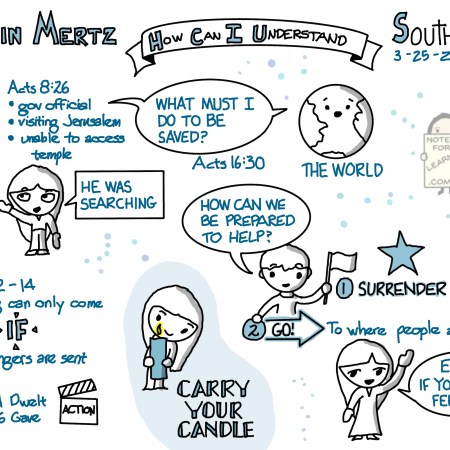 IN MERTZ
HOW CAN I UNDERSTAND
SOUTH
3-25-2
Acts 8:26
• gov official
• visiting Jerusalem
• unable to access
temple
WHAT MUST I
DO TO BE
SAVED?
Acts 16:30
THE WORLD
NOTE
FOR
LEARN
.COM
HE WAS
SEARCHING
HOW CAN WE
BE PREPARED
TO HELP?
1 SURRENDER
2 GO!
To where people a
2-14
g can only come
IF
ngers are sent
Dwelt
Gave
ACTION
CARRY
YOUR
CANDLE
E
IF YOU
FEE